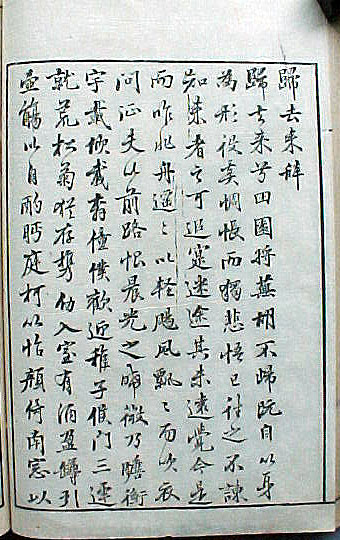 歸去来辞
歸去来兮田園将蕪胡不歸既自以身
為形役奚惆悵而獨悲悟已往之不諫
知来者之可追寔迷途其未遠覺今是
而昨非舟遥〻以軽颺風飄〻而吹衣
问征夫以前路恨晨光之晞微乃瞻衡
宇載欣載奔僮僕歡迎稚子候门三逕
就荒松菊猶存攜幼入室有酒盈罇引
壺觴以自酌眄庭柯以怡顔倚南窓以